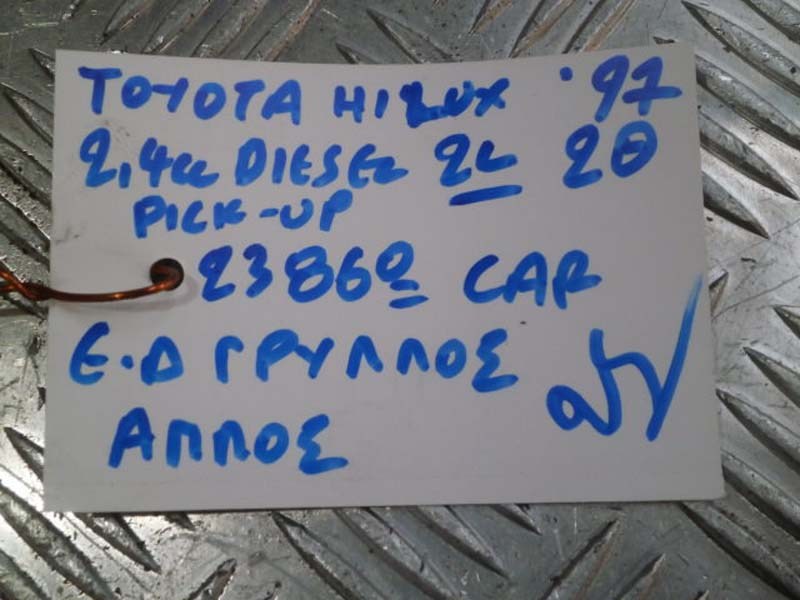 TOYOTA HILUX '97
2,4cc DIESEL 2L 2Θ
PICK-UP
23860 CAR
Ε.Δ ΓΡΥΛΛΟΣ
ΑΠΛΟΣ